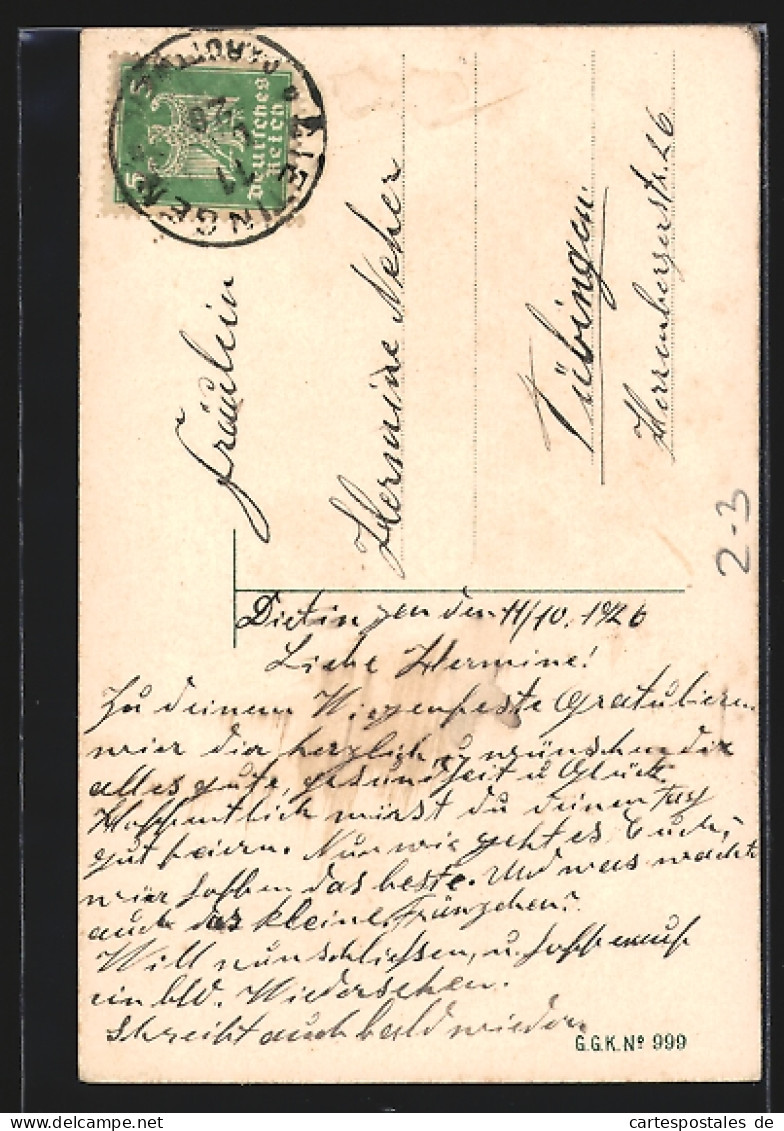 DIETINGEN
11
26
5
Deutsches
Reich
Fräulein
Hermine Neher
Tübingen.
Herrenbergerstr. 26
2-3
Dietingen den 11/10. 1926
Liebe Hermine!
Zu deinem Wiegenfeste Gratulieren
wier dir herzlich u. wünschen dir
alles gute, gesundheit u Glück
Hoffentlich wirst du deinen Tag
gut feiern. Nun wie geht es Euch,
wier hoffen das beste. Und was macht
auch das kleine Fränzchen?
Will nun schliessen, u. hoffe auf
ein bld. Wiedersehen.
Schreibt auch bald wieder
G.G.K. Nº 999
www.cartespostales.eu
cartespostales.de